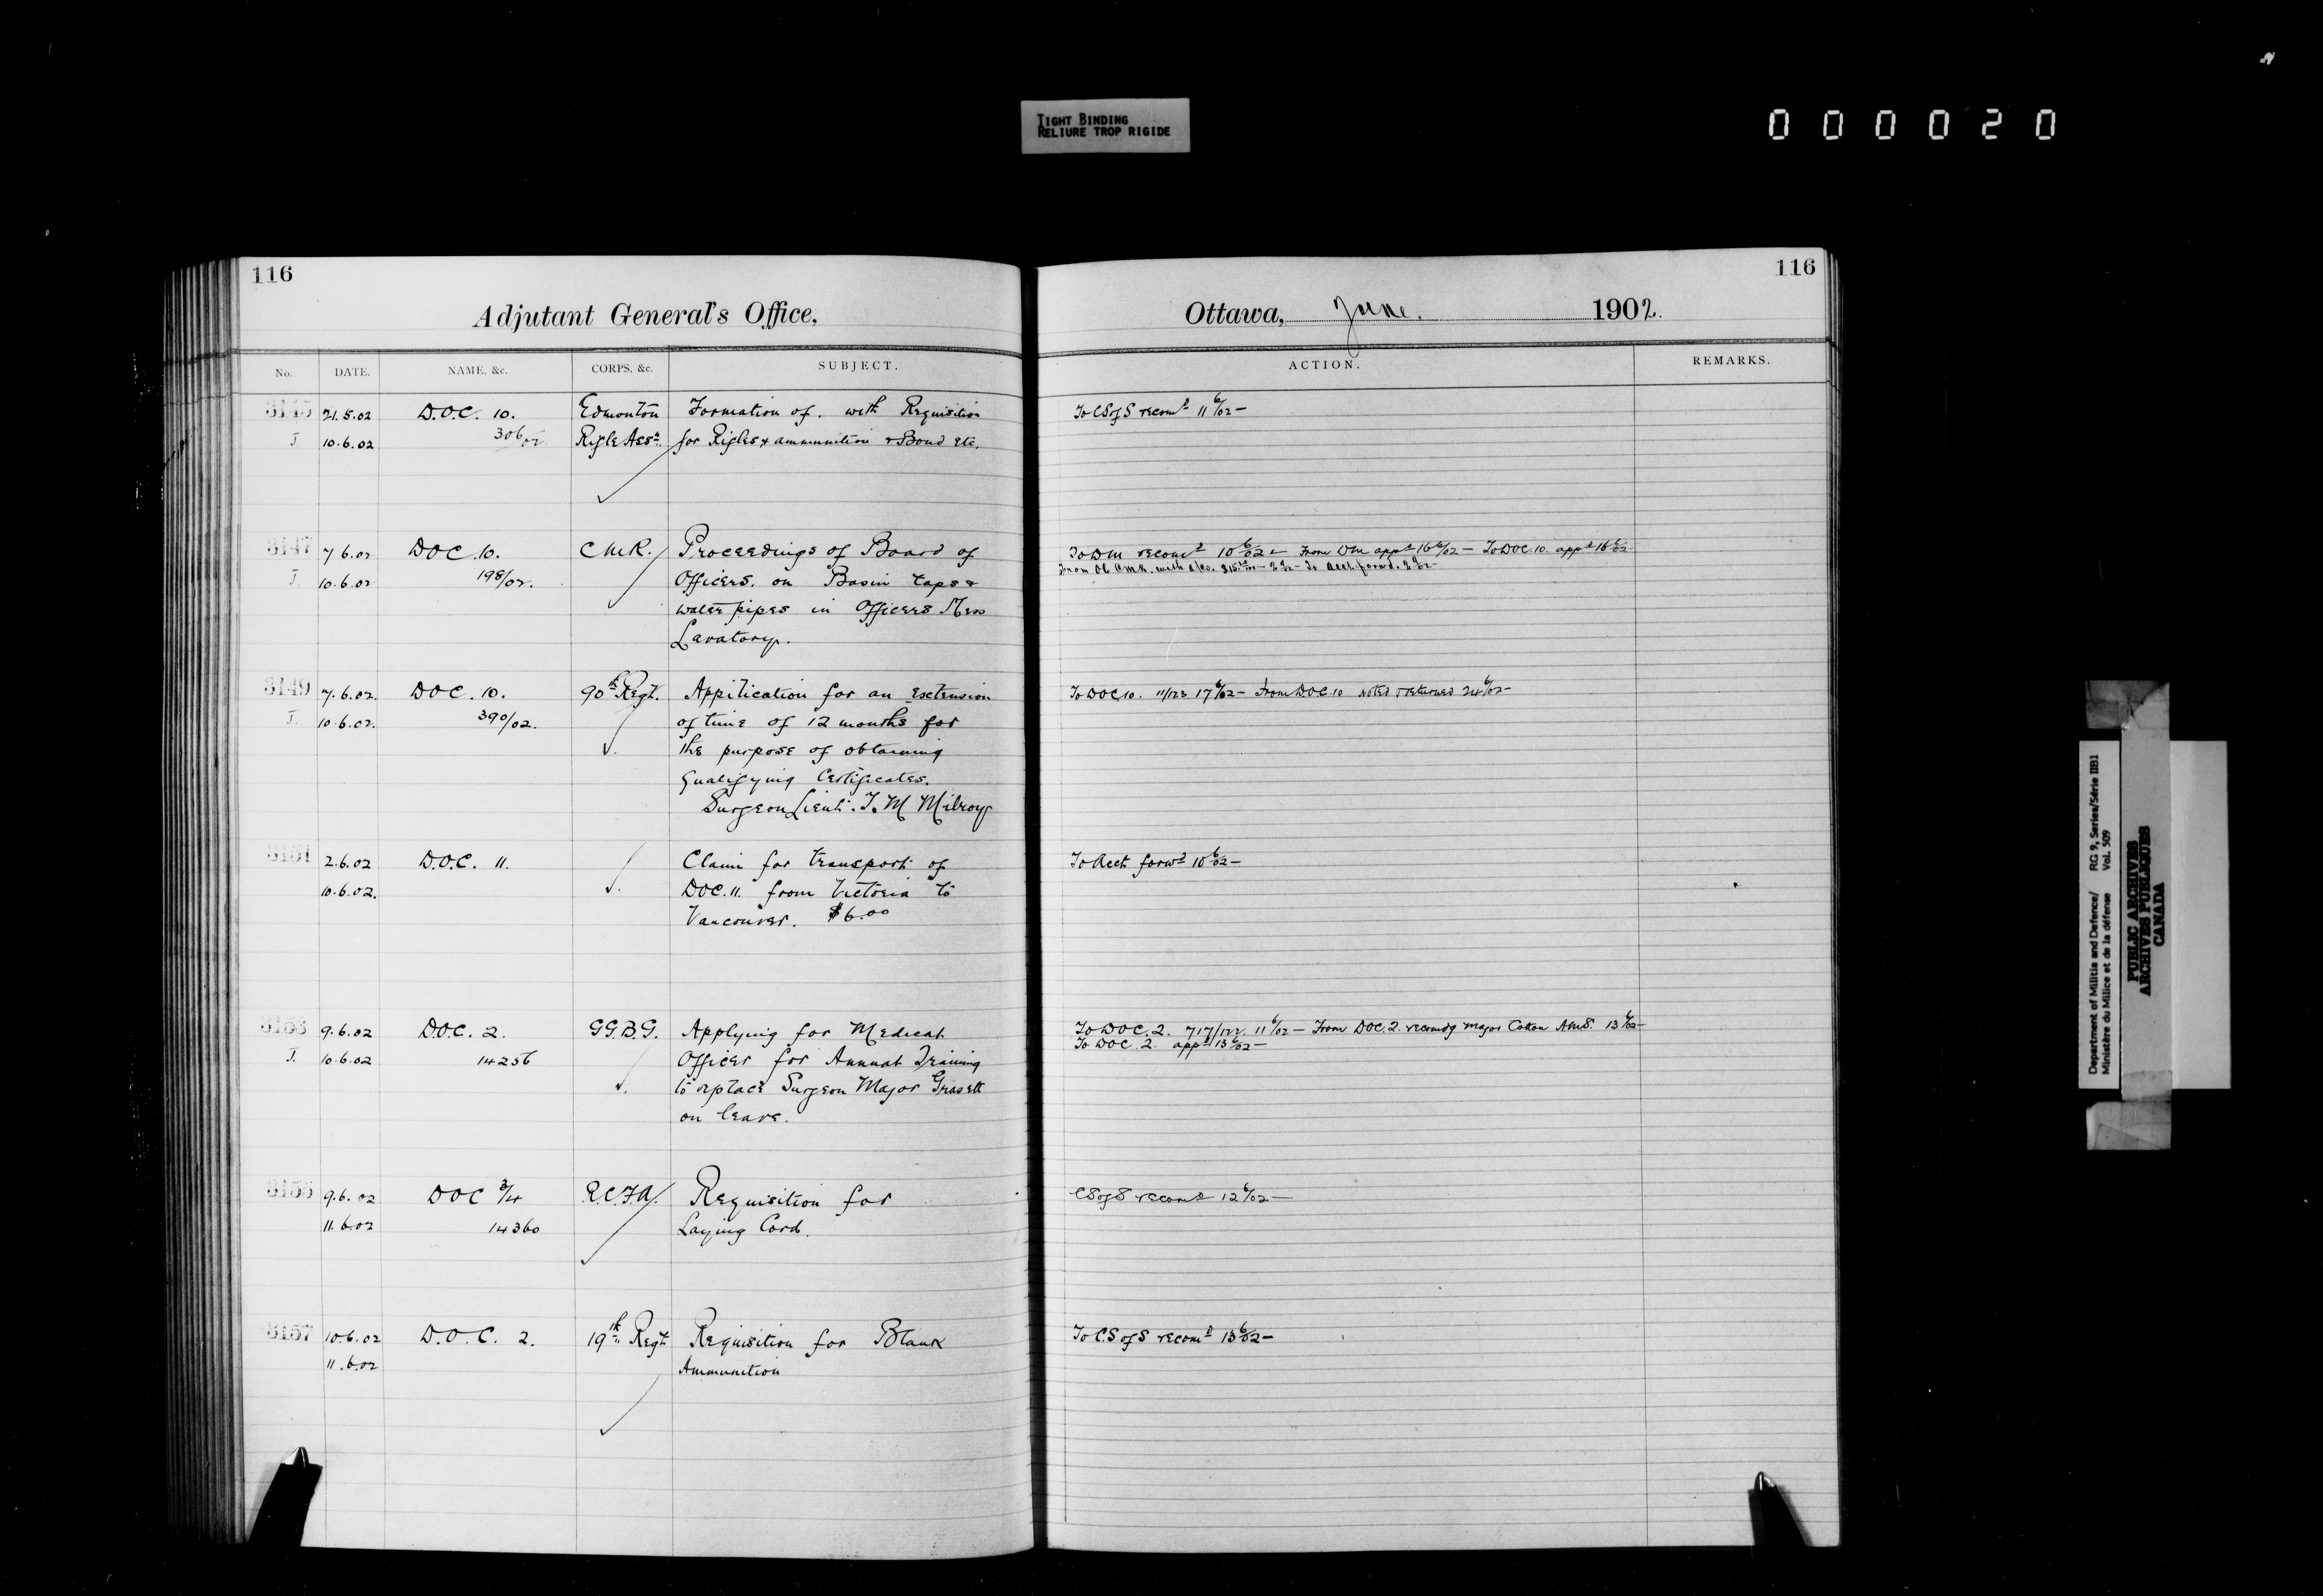 TIGHT BINDING
RELIURE TROP RIGIDE
000020
116
Adjutant General's Office,
No. DATE. NAME, &c. CORPS, &c. SUBJECT.
3145 21.5.02 D.O.C. 10. Edmonton Formation of. with Requisition
J. 10.6.02 306/02 Rifle Assn. for Rifles & ammunition & Bond etc.
3147 7.6.02 DOC.10. CMR. Proceedings of Board of
J. 10.6.02 198/02. Officers. on Basin taps &
water pipes in Officers Mess
Lavatory.
3149 7.6.02. DOC.10. 90th Regt. Appilication for an Esctension
J. 10.6.02. 390/02. of time of 12 months for
the purpose of obtaining
Qualifying Certificates.
Surgeon Lieut. T. M Milroy
3151 2.6.02 D.O.C. 11. Claim for transport of
10.6.02. DOC.11. from Victoria to
Vancouver. $6.00
3153 9.6.02 D.O.C. 2. G.G.B.G. Applying for Medical
J. 10.6.02 14256 Officer for Annual Training
to replace Surgeon Major Grasett
on leave.
3155 9.6.02 DOC 3/4 R.C.F.A. Requisition for
11.6.02 14360 Laying Cord.
3157 10.6.02 D.O.C. 2. 19th Regt. Requisition for Blank
11.6.02 Ammunition
116
Ottawa, June. 1902.
ACTION. REMARKS.
To CSofS recomd 11 6/02 —
To DM recomd 10 6/02 — From DM appd 16 6/02 — To DOC.10. appd 16 6/02
From OC CMR. with a/cs.
To DOC10. 11/123 17 6/02 — From DOC.10 Noted & returned 24 6/02 —
To Acct forwd 10 6/02 —
To DOC. 2. 717/122. 11 6/02 — From DOC.2. recomdg Major Cotton AMS. 13 6/02 —
To DOC. 2. appd 13 6/02 —
CSofS recomd 12 6/02 —
To C.S of S recomd 13 6/02 —
Department of Militia and Defence/ RG 9, Series/Série IIB1
Ministère du Milice et de la défense Vol. 509
PUBLIC ARCHIVES
ARCHIVES PUBLIQUES
CANADA